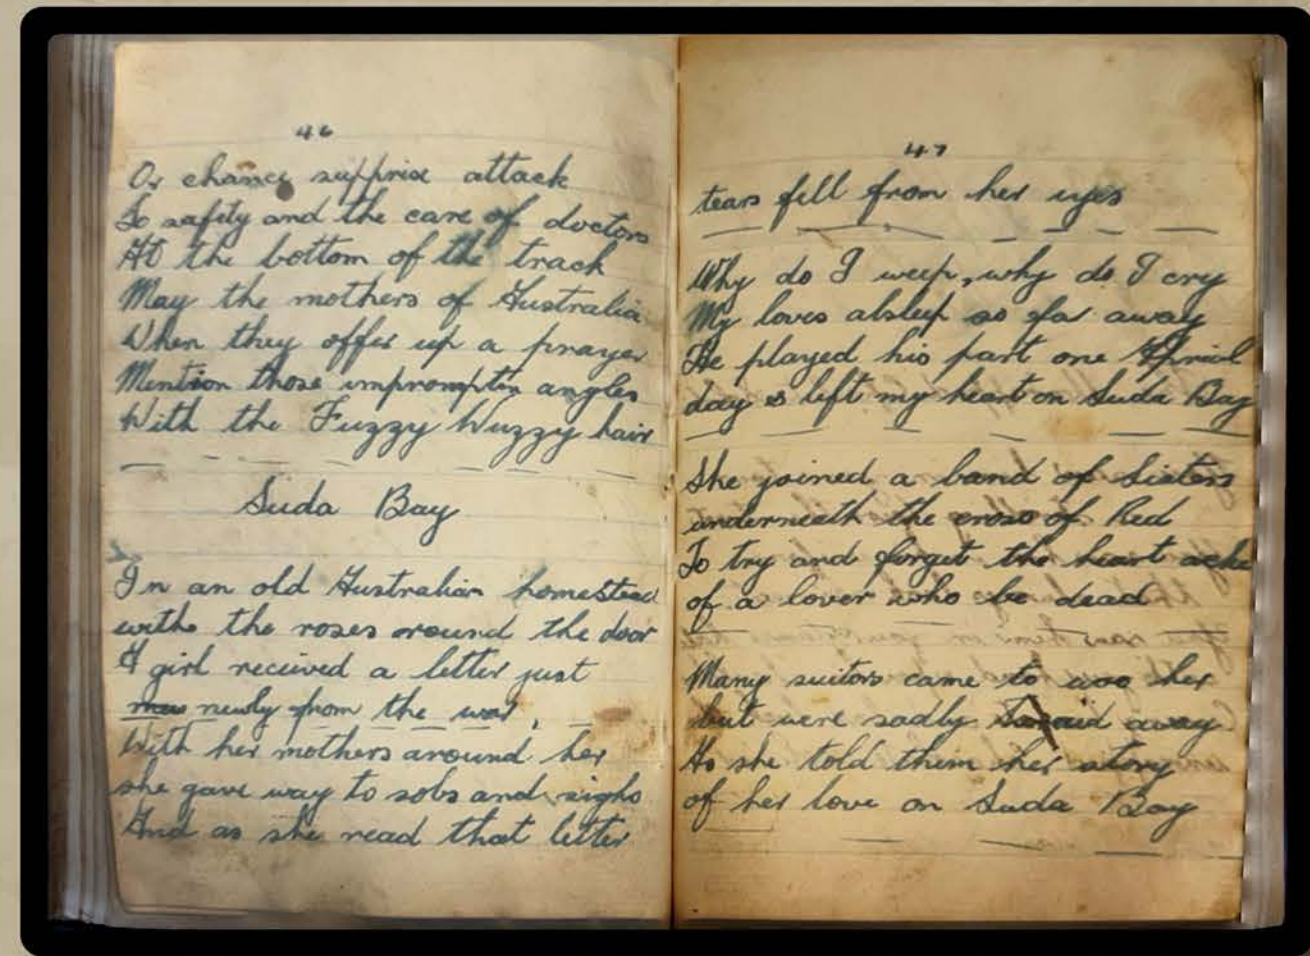 46
Or chance supprise attack
To safety and the care of doctors
At the bottom of the track
May the mothers of Australia
When they offer up a prayer
Mention those impromptu angles
With the Fuzzy Wuzzy hair
Suda Bay
In an old Australian homestead
withe the roses around the door
A girl received a letter just
newly from the war,
With her mothers around her
she gave way to sobs and sighs
And as she read that letter
47
tears fell from her eyes
Why do I weep, why do I cry
My loves alseep so far away
He played his part one April
day & left my heart on Suda Bay
She joined a band of Sisters
underneath the cross of Red
To try and forget the heart ache
of a lover who be dead
Many suitors came to woo her
but were sadly away
As she told them her story
of her love on Suda Bay